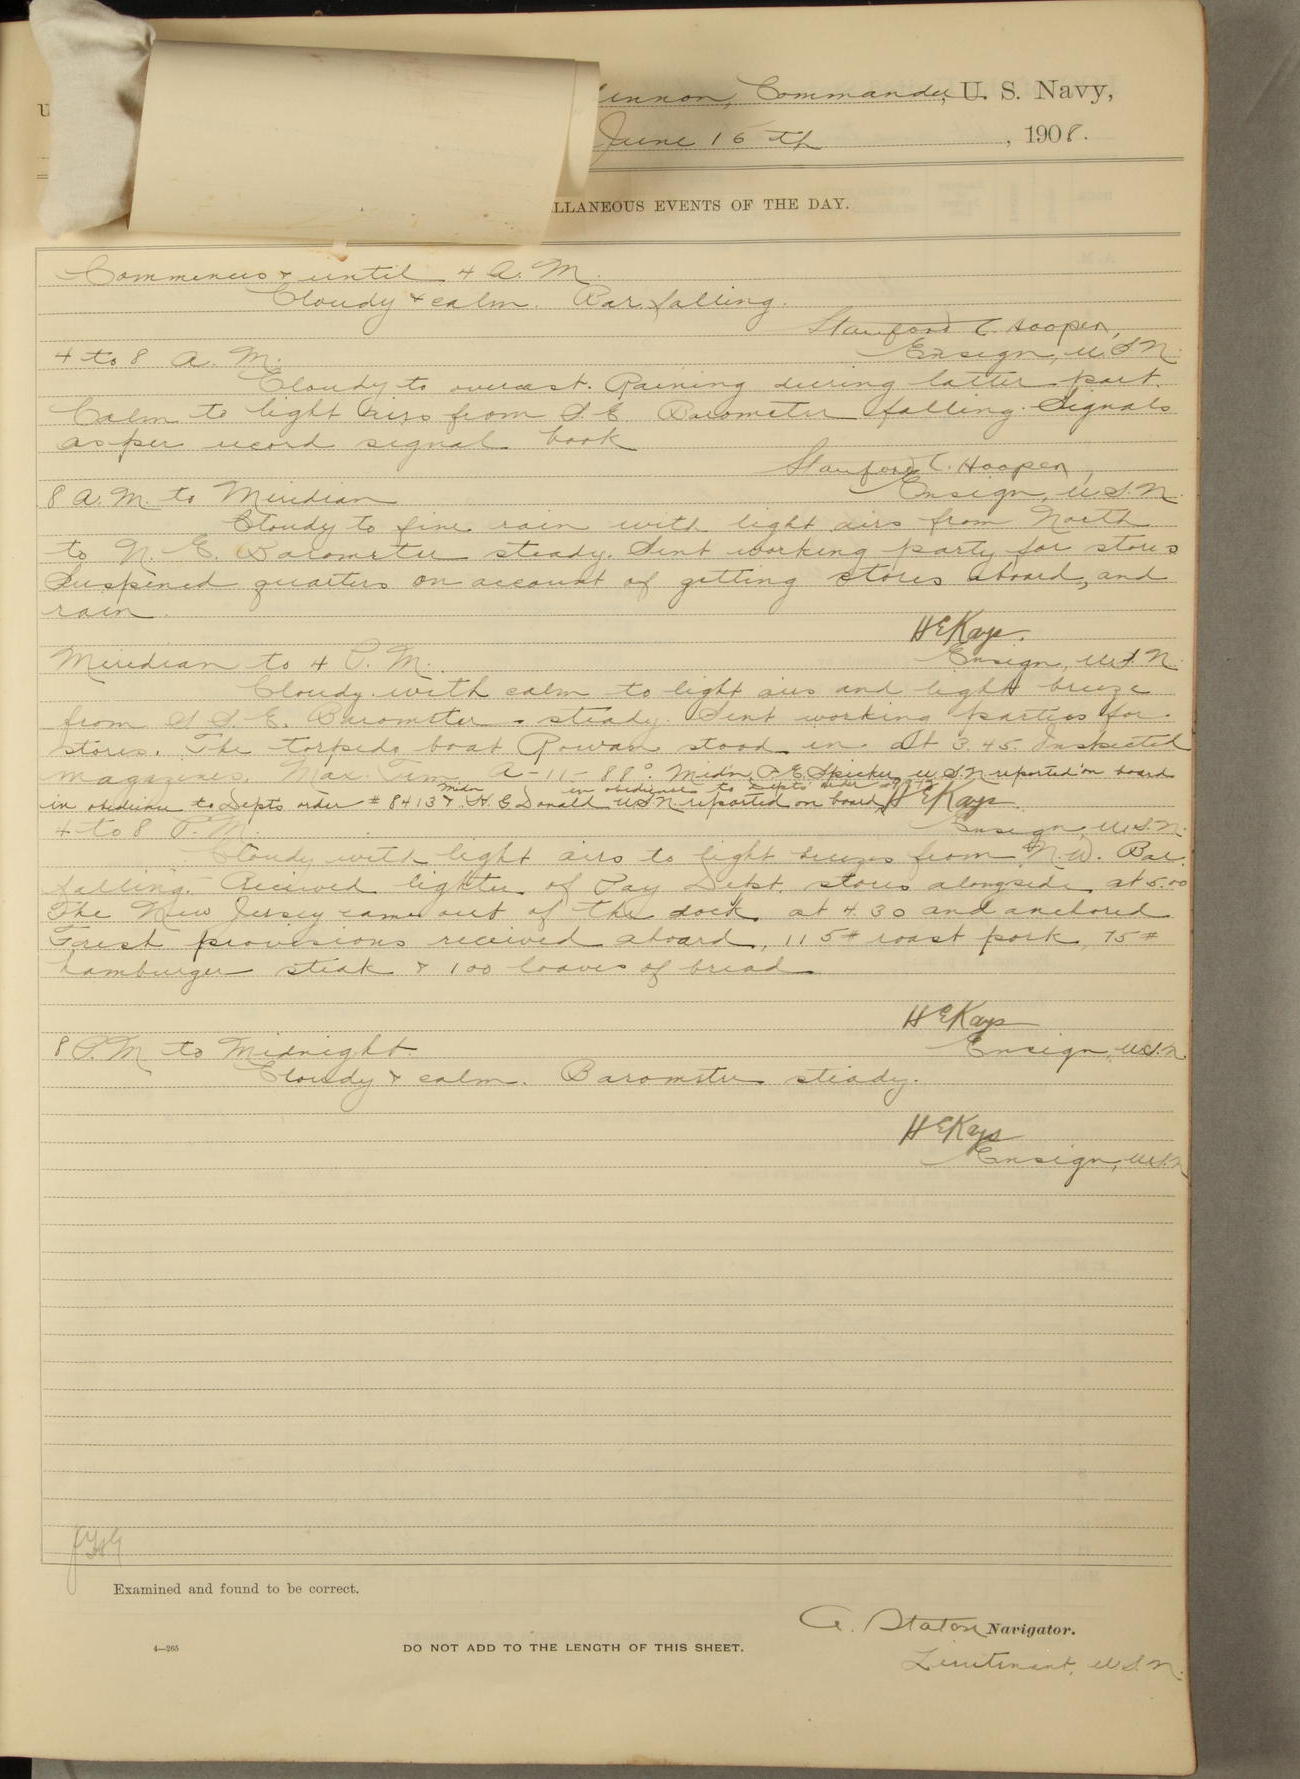 U
ennon, Commander, U. S. Navy,
June 15 th, 1908.
LLANEOUS EVENTS OF THE DAY.
Commences & until 4 A. M.
Cloudy & calm. Bar. falling.
Stanford C. Hooper,
4 to 8 A. M.
Ensign, U.S.N.
Cloudy to overcast. Raining during latter part.
Calm to light airs from S. E. Barometer falling. Signals
as per record signal book
Stanford C. Hooper,
8 A. M. to Meridian
Ensign, U.S.N.
Cloudy to fine rain with light airs from North
to N. E. Barometer steady. Sent working party for stores
Suspened quarters on account of getting stores aboard, and
rain.
H E Kays.
Meridian to 4 P. M.
Ensign, U.S.N.
Cloudy with calm to light airs and light breeze
from S. S. E. Barometer steady. Sent working parties for
stores. The torpedo boat Rowan stood in at 3.45. Inspected
magazines. Max. Tem. A-11-88°. Midn. P. E. Speicher U.S.N reported on board
Midn in obedience to Depts order
in obedience to Depts order # 8413 & H. G Donald U.S.N reported on board
H E Kays
4 to 8 P. M.
Ensign, U.S.N.
Cloudy with light airs to light breezes from N.W. Bar.
falling. Received lighter of Pay Dept. stores alongside at 5.00
The New Jersey came out of the dock at 4.30 and anchored
Fresh provisions received aboard, 115# roast pork, 75#
hamburger steak & 100 loaves of bread
H E Kays
8 P.M to Midnight.
Ensign, U.S.N.
Cloudy & calm. Barometer steady.
H E Kays
Ensign, U.S.N
Examined and found to be correct.
A. Staton Navigator.
4—265
DO NOT ADD TO THE LENGTH OF THIS SHEET.
Lieutenant, U.S.N.